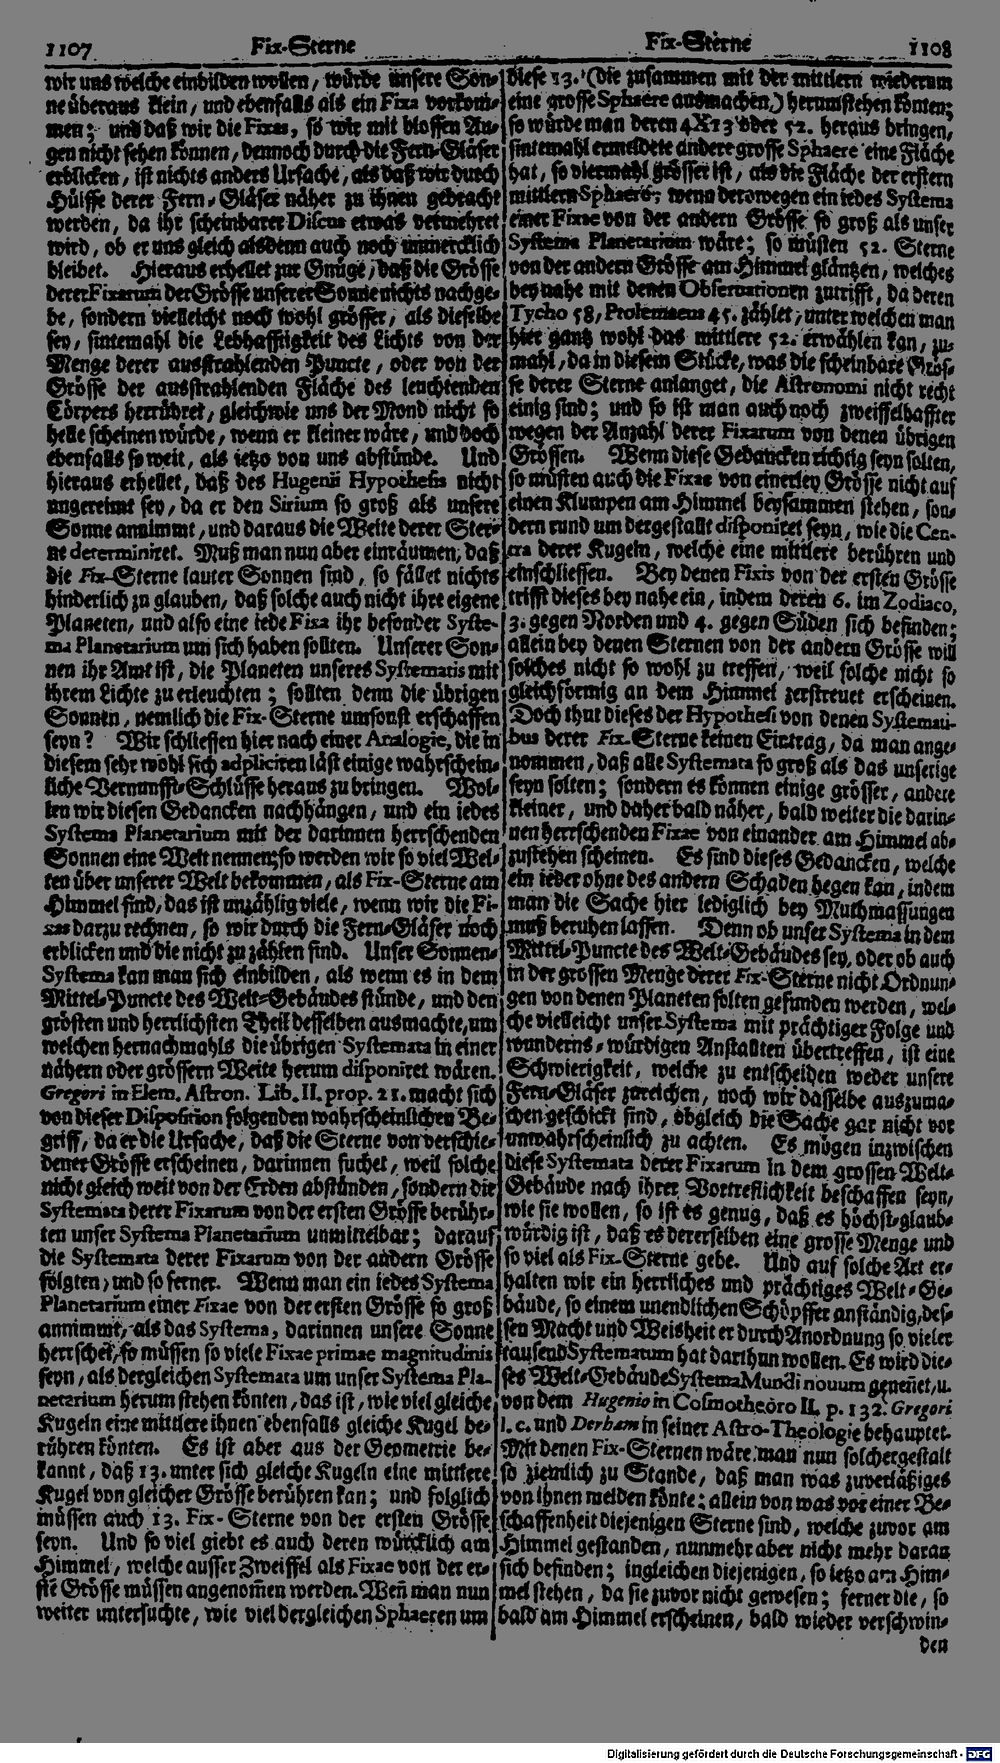 1107 Fix-Sterne
wir uns welche einbilden wollen, würde unsere Son-
ne überaus klein, und ebenfalls als ein Fixa vorkom-
men; und daß wir die Fixas, so wir mit blossen Au-
gen nicht sehen können, dennoch durch die Fern-Gläser
erblicken, ist nichts anders Ursache, als daß wir durch
Hülffe derer Fern-Gläser näher zu ihnen gebracht
werden, da ihr scheinbarer Discus etwas vermehret
wird, ob er uns gleich alsdenn auch noch unmercklich
bleibet. Hieraus erhellet zur Gnüge, daß die Grösse
derer Fixarum der Grösse unserer Sonne nichts nachge-
be, sondern vielleicht noch wohl grösser, als dieselbe
sey, sintemahl die Lebhafftigkeit des Lichts von der
Menge derer ausstrahlenden Puncte, oder von der
Grösse der ausstrahlenden Fläche des leuchtenden
Cörpers herrühret, gleichwie uns der Mond nicht so
helle scheinen würde, wenn er kleiner wäre, und doch
ebenfalls so weit, als ietzo von uns abstünde. Und
hieraus erhellet, daß des Hugenii Hypothesis nicht
ungereimt sey, da er den Sirium so groß als unsere
Sonne annimmt, und daraus die Weite derer Ster-
ne determiniret. Muß man nun aber einräumen, daß
die Fix-Sterne lauter Sonnen sind, so fället nichts
hinderlich zu glauben, daß solche auch nicht ihre eigene
Planeten, und also eine iede Fixa ihr besonder Syste-
ma Planetarium um sich haben sollten. Unserer Son-
nen ihr Amt ist, die Planeten unseres Systematis mit
ihrem Lichte zu erleuchten; sollten denn die übrigen
Sonnen, nemlich die Fix-Sterne umsonst erschaffen
seyn? Wir schliessen hier nach einer Analogie, die in
diesem sehr wohl sich adpliciren läst einige wahrschein-
liche Vernunfft-Schlüsse heraus zu bringen. Wol-
len wir diesen Gedancken nachhängen, und ein iedes
Systema Planetarium mit der darinnen herrschenden
Sonnen eine Welt nennen; so werden wir so viel Wel-
ten über unserer Welt bekommen, als Fix-Sterne am
Himmel sind, das ist unzählig viele, wenn wir die Fi-
xas darzu rechnen, so wir durch die Fern-Gläser noch
erblicken und die nicht zu zählen sind. Unser Sonnen-
Systema kan man sich einbilden, als wenn es in dem
Mittel-Puncte des Welt-Gebäudes stünde, und den
grösten und herrlichsten Theil desselben ausmachte, um
welchen hernachmahls die übrigen Systemata in einer
nähern oder grössern Weite herum disponiret wären.
Gregori in Elem. Astron. Lib. II. prop. 21. macht sich
von dieser Disposition folgenden wahrscheinlichen Be-
griff, da er die Ursache, daß die Sterne von verschie-
dener Grösse erscheinen, darinnen suchet, weil solche
nicht gleich weit von der Erden abstünden, sondern die
Systemata derer Fixarum von der ersten Grösse berühr-
ten unser Systema Planetarium unmittelbar; darauf
die Systemata derer Fixarum von der andern Grösse
folgten, und so ferner. Wenn man ein iedes Systema
Planetarium einer Fixae von der ersten Grösse so groß
annimmt, als das Systema, darinnen unsere Sonne
herrschet, so müssen so viele Fixae primae magnitudinis
seyn, als dergleichen Systemata um unser Systema Pla-
netarium herum stehen könten, das ist, wie viel gleiche
Kugeln eine mittlere ihnen ebenfalls gleiche Kugel be-
rühren könten. Es ist aber aus der Geometrie be-
kannt, daß 13. unter sich gleiche Kugeln eine mittlere
Kugel von gleicher Grösse berühren kan; und folglich
müssen auch 13. Fix-Sterne von der ersten Grösse
seyn. Und so viel giebt es auch deren würcklich am
Himmel, welche ausser Zweiffel als Fixae von der er-
sten Grösse müssen angenom̃en werden. Weñ man nun
weiter untersuchte, wie viel dergleichen Sphaeren um
Fix-Sterne 1108
diese 13. (die zusammen mit der mittlern wiederum
eine grosse Sphaere ausmachen,) herumstehen könten;
so würde man deren 4X13 oder 52. heraus bringen,
sintemahl ermeldete andere grosse Sphaere eine Fläche
hat, so viermahl grösser ist, als die Fläche der erstern
mittlern Sphaere; wenn derowegen ein iedes Systema
einer Fixae von der andern Grösse so groß als unser
Systema Planetarium wäre; so müsten 52. Sterne
von der andern Grösse am Himmel gläntzen, welches
bey nahe mit denen Observationen zutrifft, da deren
Tycho 58, Ptolemaeus 45. zählet, unter welchen man
hier gantz wohl das mittlere 52. erwählen kan, zu-
mahl, da in diesem Stücke, was die scheinbare Grös-
se derer Sterne anlanget, die Astronomi nicht recht
einig sind; und so ist man auch noch zweiffelhaffter
wegen der Anzahl derer Fixarum von denen übrigen
Grössen. Wenn diese Gedancken richtig seyn solten,
so müsten auch die Fixae von einerley Grösse nicht auf
einen Klumpen am Himmel beysammen stehen, son-
dern rund um dergestallt disponiret seyn, wie die Cen-
tra derer Kugeln, welche eine mittlere berühren und
einschliessen. Bey denen Fixis von der ersten Grösse
trifft dieses bey nahe ein, indem deren 6. im Zodiaco,
3. gegen Norden und 4. gegen Süden sich befinden;
allein bey denen Sternen von der andern Grösse will
solches nicht so wohl zu treffen, weil solche nicht so
gleichförmig an dem Himmel zerstreuet erscheinen.
Doch thut dieses der Hypothesi von denen Systemati-
bus derer Fix-Sterne keinen Eintrag, da man ange-
nommen, daß alle Systemata so groß als das unserige
seyn solten; sondern es können einige grösser, andere
kleiner, und daher bald näher, bald weiter die darin-
nen herrschenden Fixae von einander am Himmel ab-
zustehen scheinen. Es sind dieses Gedancken, welche
ein ieder ohne des andern Schaden hegen kan, indem
man die Sache hier lediglich bey Muthmassungen
muß beruhen lassen. Denn ob unser Systema in dem
Mittel-Puncte des Welt-Gebäudes sey, oder ob auch
in der grossen Menge derer Fix-Sterne nicht Ordnun-
gen von denen Planeten solten gefunden werden, wel-
che vielleicht unser Systema mit prächtiger Folge und
wunderns-würdigen Anstallten übertreffen, ist eine
Schwierigkeit, welche zu entscheiden weder unsere
Fern-Gläser zureichen, noch wir dasselbe auszuma-
chen geschickt sind, obgleich die Sache gar nicht vor
unwahrscheinlich zu achten. Es mögen inzwischen
diese Systemata derer Fixarum in dem grossen Welt-
Gebäude nach ihrer Vortreflichkeit beschaffen seyn,
wie sie wollen, so ist es genug, daß es höchst-glaub-
würdig ist, daß es dererselben eine grosse Menge und
so viel als Fix-Sterne gebe. Und auf solche Art er-
halten wir ein herrliches und prächtiges Welt-Ge-
bäude, so einem unendlichen Schöpffer anständig, des-
sen Macht und Weisheit er durch Anordnung so vieler
tausend Systematum hat darthun wollen. Es wird die-
ses Welt-Gebäude Systema Mundi novum geneñet, u.
von dem Hugenio in Cosmotheoro II. p. 132. Gregori
l. c. und Derham in seiner Astro-Theologie behauptet.
Mit denen Fix-Sternen wäre man nun solchergestalt
so ziemlich zu Stande, daß man was zuverläßiges
von ihnen melden könte: allein von was vor einer Be-
schaffenheit diejenigen Sterne sind, welche zuvor am
Himmel gestanden, nunmehr aber nicht mehr daran
sich befinden; ingleichen diejenigen, so ietzo am Him-
mel stehen, da sie zuvor nicht gewesen; ferner die, so
bald am Himmel erscheinen, bald wieder verschwin-
den
Digitalisierung gefördert durch die Deutsche Forschungsgemeinschaft - DFG